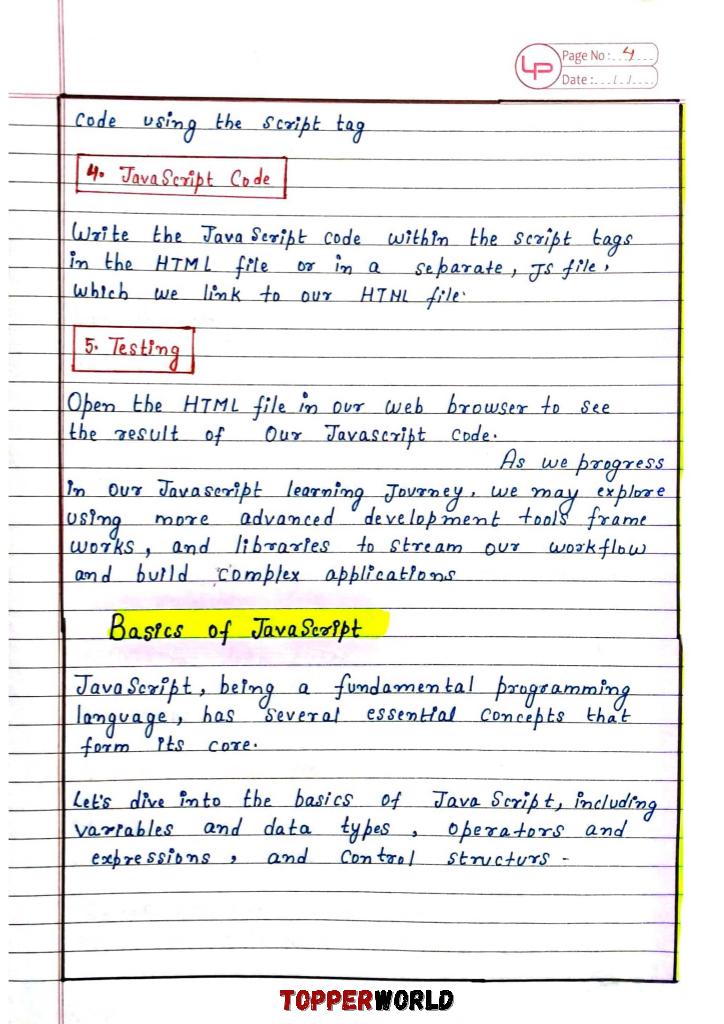 Page No: 4
Date: / /
code using the script tag
4. JavaScript Code
Write the JavaScript code within the script tags
in the HTML file or in a separate, JS file,
which we link to our HTML file.
5. Testing
Open the HTML file in our web browser to see
the result of Our Javascript code.
As we progress
in our Javascript learning Journey, we may explore
using more advanced development tools frame
works, and libraries to stream our workflow
and build complex applications
Basics of JavaScript
JavaScript, being a fundamental programming
language, has several essential concepts that
form its core.
Let's dive into the basics of Java Script, including
variables and data types, operators and
expressions, and control structurs -
TOPPERWORLD